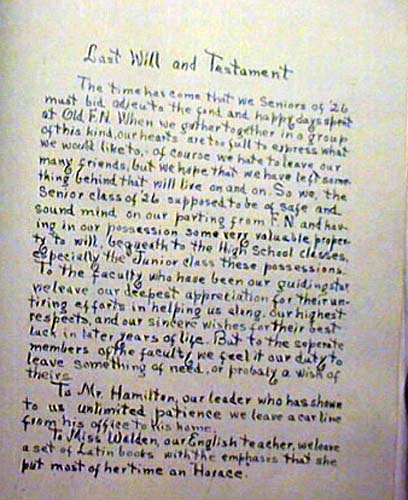 Last Will and Testament
The time has come that we Seniors of '26
must bid adjeu to the fond and happy days spent
at Old F.N. When we gather together in a group
of this kind, our hearts are too full to express what
we would like to,- of course we hate to leave our
many friends, but we hope that we have left some-
thing behind that will live on and on. So we, the
Senior class of '26 supposed to be of safe and
sound mind on our parting from F.N. and hav-
ing in our possession some very valuable proper-
ty to will, bequeath to the High School classes,
especially the Junior class these possessions.
To the faculty who have been our guiding star
we leave our deepest appreciation for their un-
tiring efforts in helping us along, our highest
respects, and our sincere wishes for their best
luck in later years of life. But to the seperate
members of the faculty we feel it our duty to
leave something of need, or probaly a wish of
theirs
To Mr. Hamilton, our leader who has shown
to us unlimited patience we leave a car line
from his office to his home.
To Miss Walden, our English teacher, we leave
a set of Latin books with the emphasis that she
put most of her time on Horace.